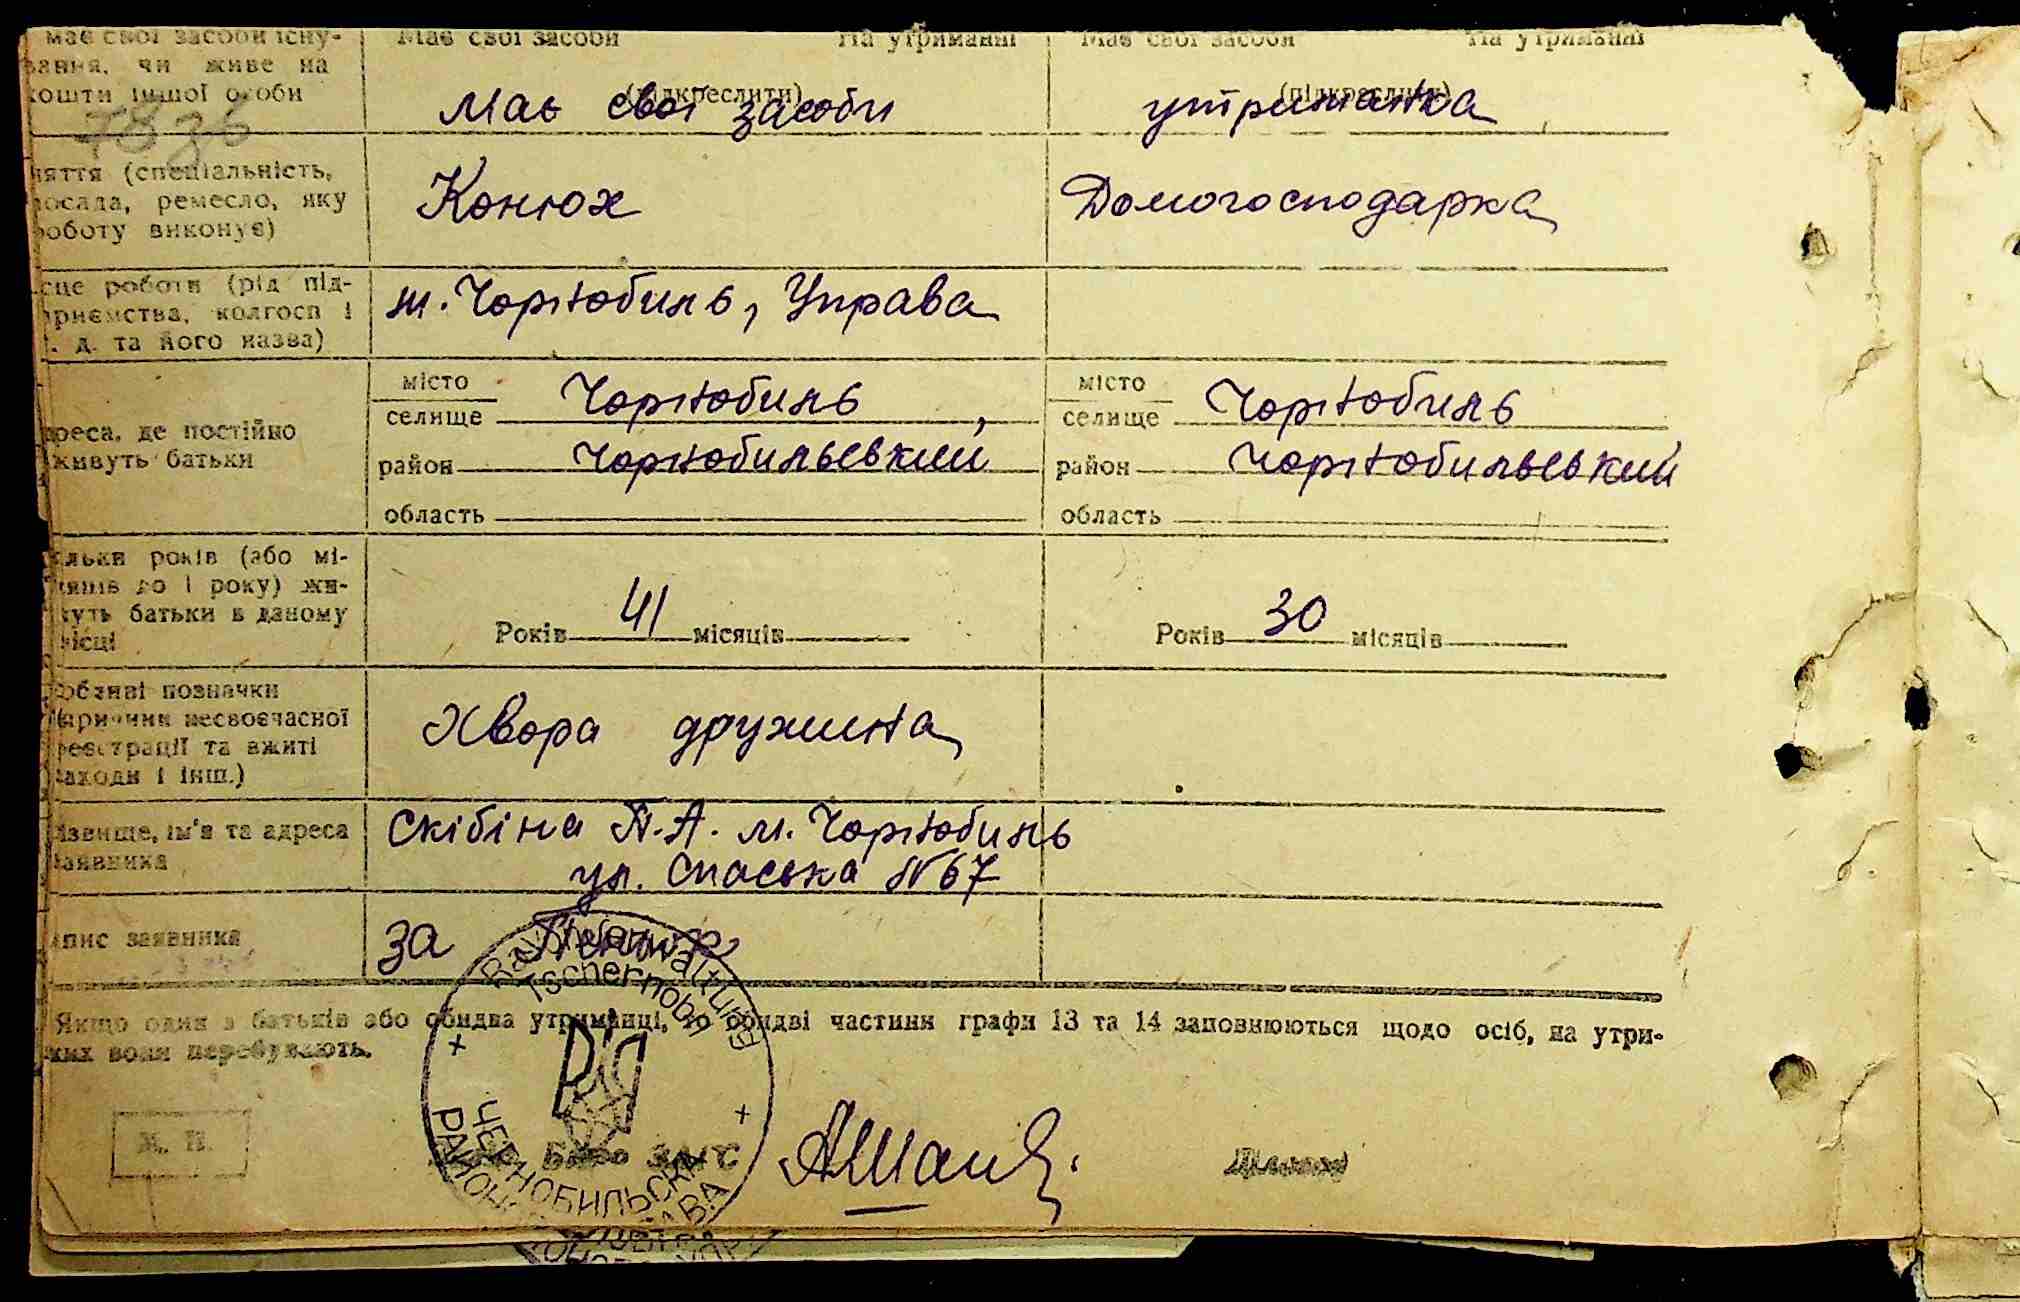 має свої засоби існу-
вання, чи живе на
кошти іншої особи
Має свої засоби На утриманні
(підкреслити)
Має свої засоби
Має свої засоби На утриманні
(підкреслити)
утриманка
7836
няття (спеціальність,
посада, ремесло, яку
роботу виконує)
Конюх
Домогосподарка
сце роботи (рід під-
приємства, колгосп і
т. д. та його назва)
м. Чорнобиль, Управа
реса, де постійно
живуть батьки
місто
селище Чорнобиль,
район Чорнобильський
область
місто
селище Чорнобиль
район Чорнобильський
область
ільки років (або мі-
сяців до 1 року) жи-
вуть батьки в даному
місці
Років 41 місяців
Років 30 місяців
Особливі позначки
(причини несвоєчасної
реєстрації та вжиті
заходи і інш.)
Хвора дружина
ізвище, ім'я та адреса
заявника
Скібіна П.А. м. Чорнобиль
ул. Спаська №67
пис заявника
за
Rayonverwaltung
Tschernobyl
Якщо один з батьків або обидва утриманці, то обидві частини графи 13 та 14 заповнюються щодо осіб, на утри-
ких вони перебувають.
М. П.
Бюро ЗАГС
ЧЕРНОБИЛЬСКА
РАЙОННА УПРАВА